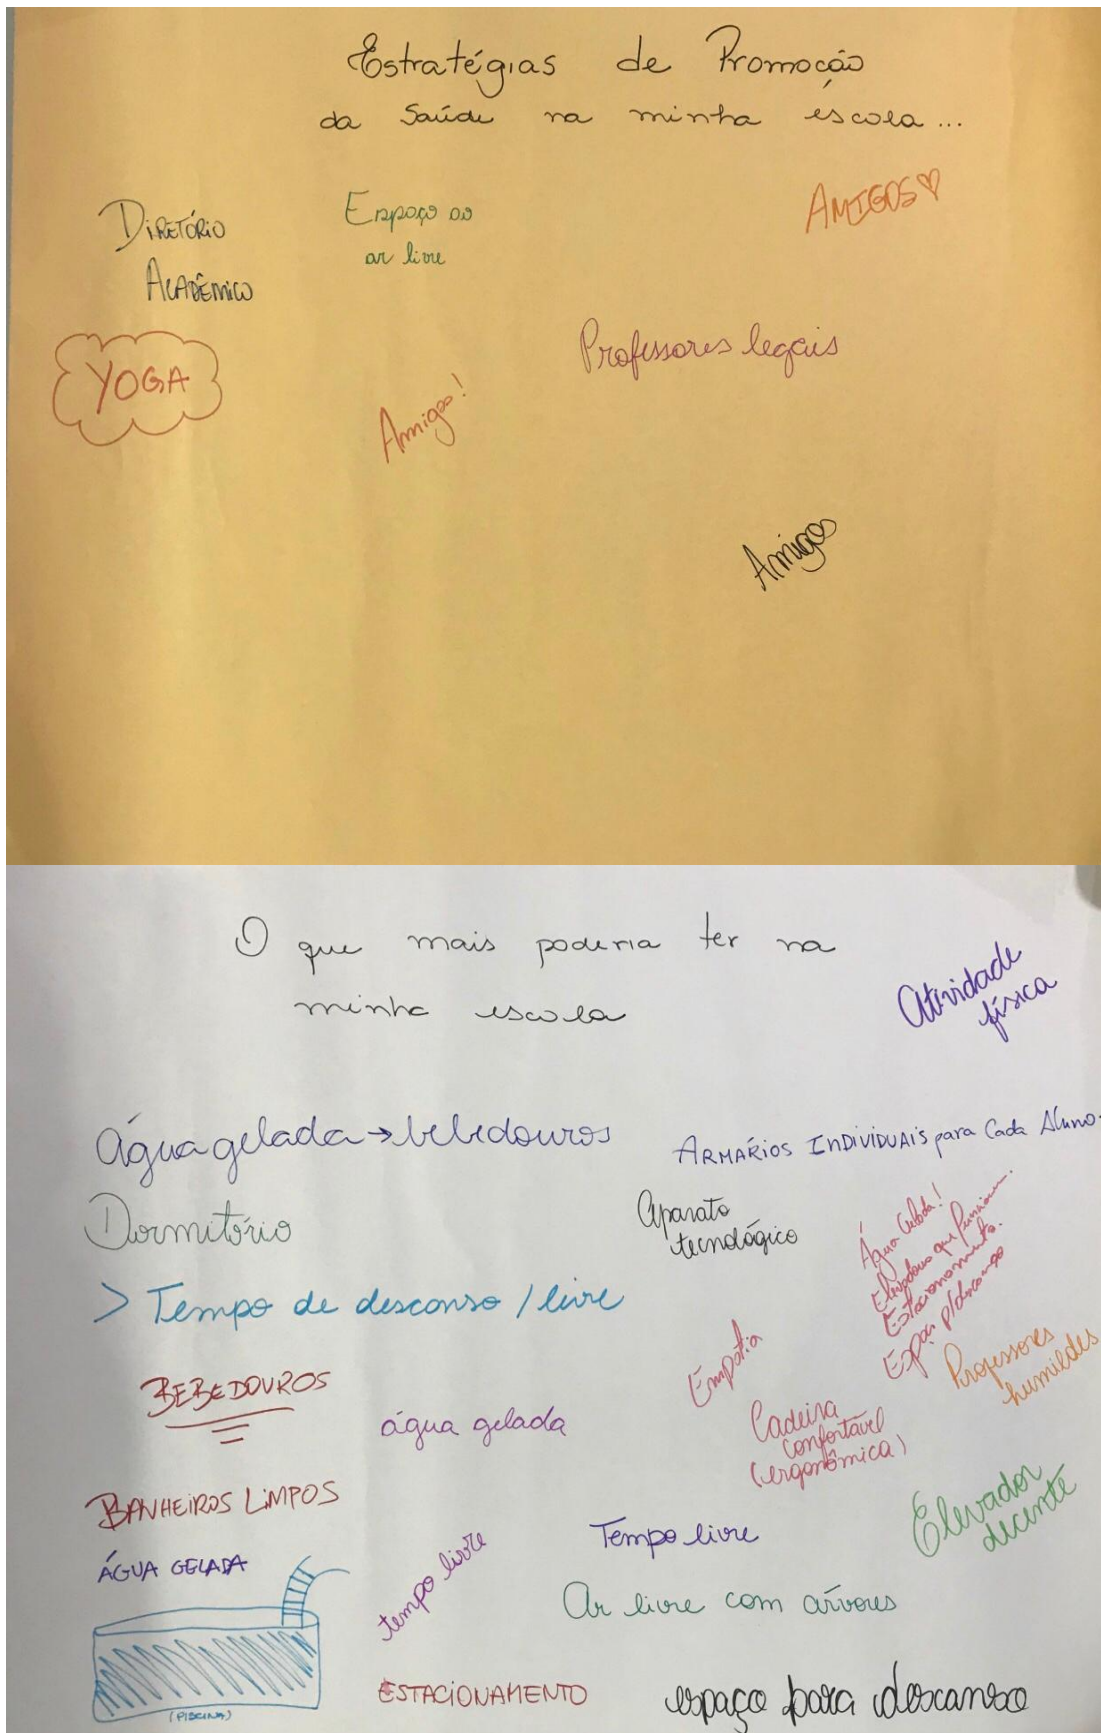 Estratégias de Promoção
da Saúde na minha escola...
DIRETÓRIO
ACADÊMICO
Espaço ao
ar livre
AMIGOS♡
YOGA
Amigos!
Professores legais
Amigos
O que mais poderia ter na
minha escola
Atividade
física
Água gelada → bebedouros
ARMÁRIOS INDIVIDUAIS para Cada Aluno.
Dormitório
Aparato
tecnológico
Água Gelada!
Elevadores que funcionem.
Estacionamento.
Espaço p/ descanso
> Tempo de descanso / livre
Empatia
Professores
humildes
BEBEDOUROS
água gelada
Cadeira
confortável
(ergonômica)
BANHEIROS LIMPOS
Elevador
decente
ÁGUA GELADA
tempo livre
Tempo livre
Ar livre com árvores
(PISCINA)
ESTACIONAMENTO
espaço para descanso